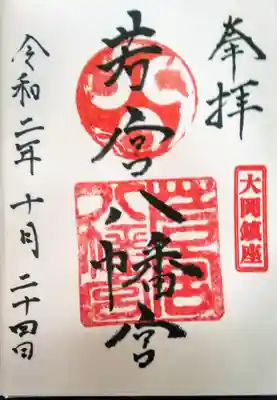 奉拝
大岡鎮座
芳宮八幡宮
令和二年十月二十四日